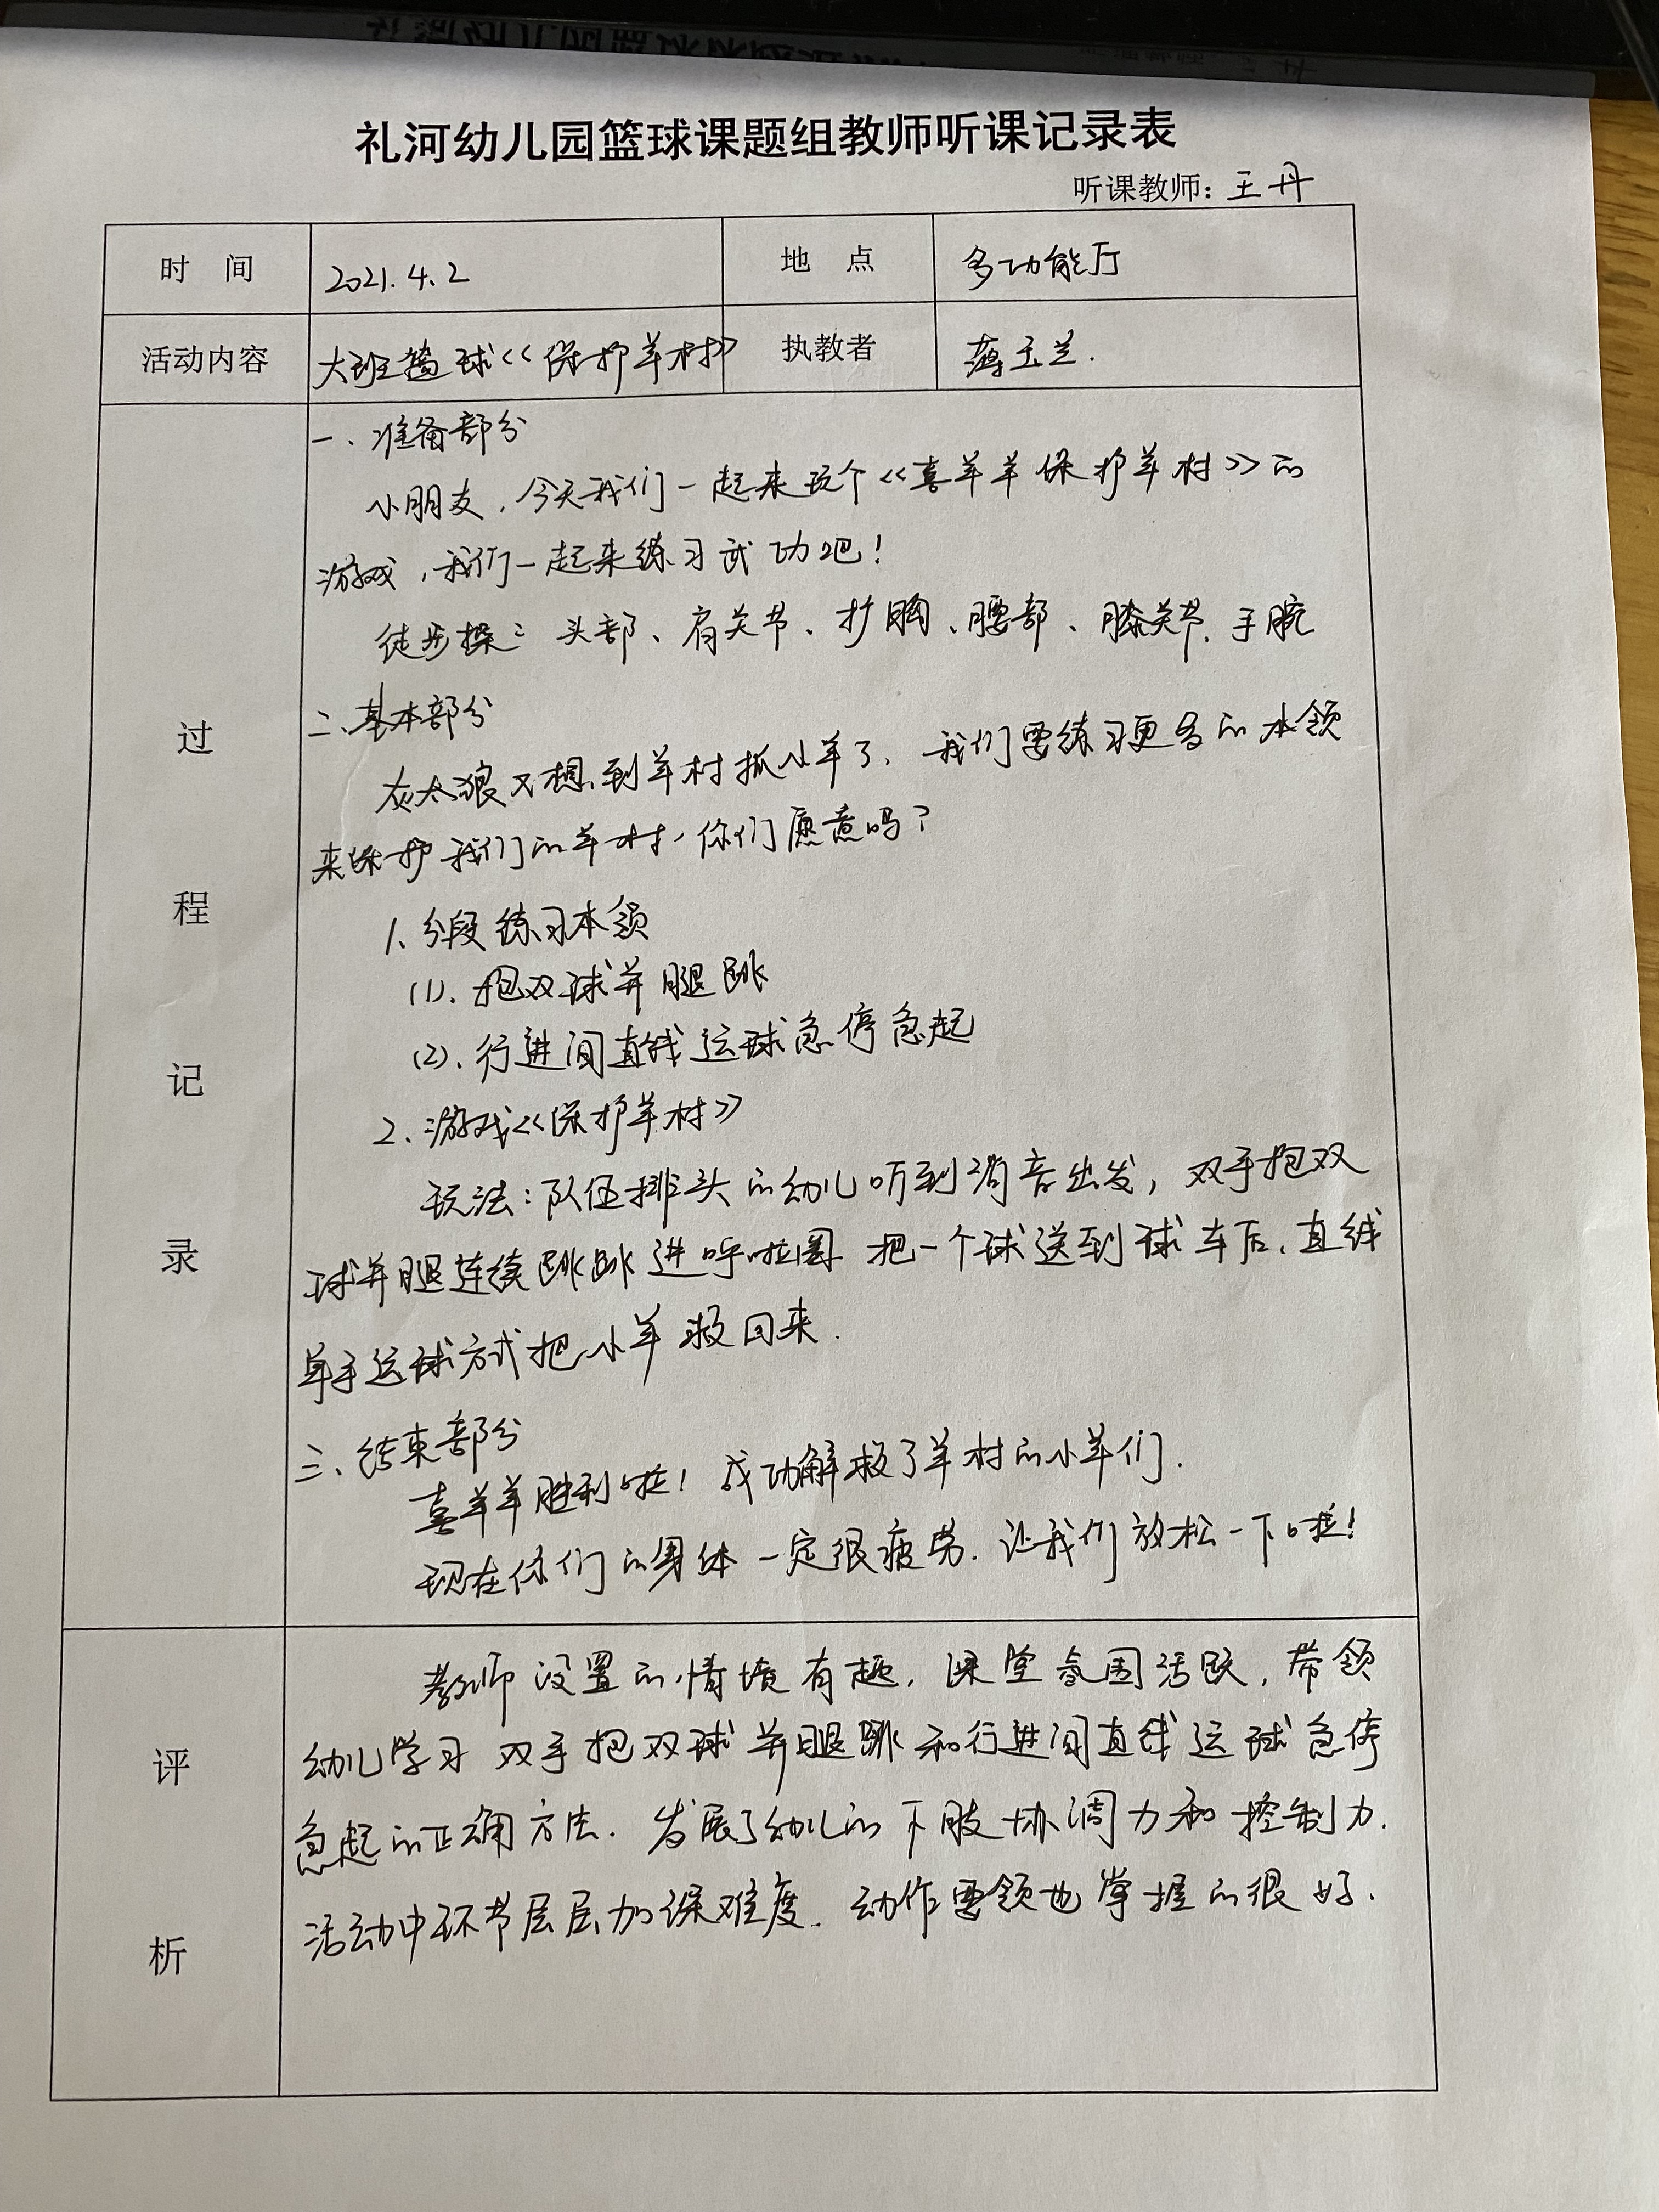 礼河幼儿园篮球课题组教师听课记录表
听课教师：王丹
时 间 2021.4.2 地 点 多功能厅
活动内容 大班篮球《保护羊村》 执教者 薛玉兰.
过程记录
一、准备部分
小朋友，今天我们一起来玩个《喜羊羊保护羊村》的
游戏，我们一起来练习武功吧！
徒步操：头部、肩关节、扩胸、腰部、膝关节、手腕
二、基本部分
灰太狼又想到羊村抓小羊了、我们要练习更多的本领
来保护我们的羊村，你们愿意吗？
1、分段练习本领
(1)、抱双球并腿跳
(2)、行进间直线运球急停急起
2、游戏《保护羊村》
玩法：队伍排头的幼儿听到消音出发，双手抱双
球并腿连续跳跳进呼啦圈 把一个球送到球车后、直线
单手运球方式把小羊救回来.
三、结束部分
喜羊羊胜利啦！成功解救了羊村的小羊们.
现在你们的身体一定很疲劳.让我们放松一下啦！
评析
教师设置的情境有趣，课堂氛围活跃，带领
幼儿学习双手抱双球并腿跳和行进间直线运球急停
急起的正确方法.发展了幼儿的下肢协调力和控制力.
活动中环节层层加深难度.动作要领也掌握的很好.